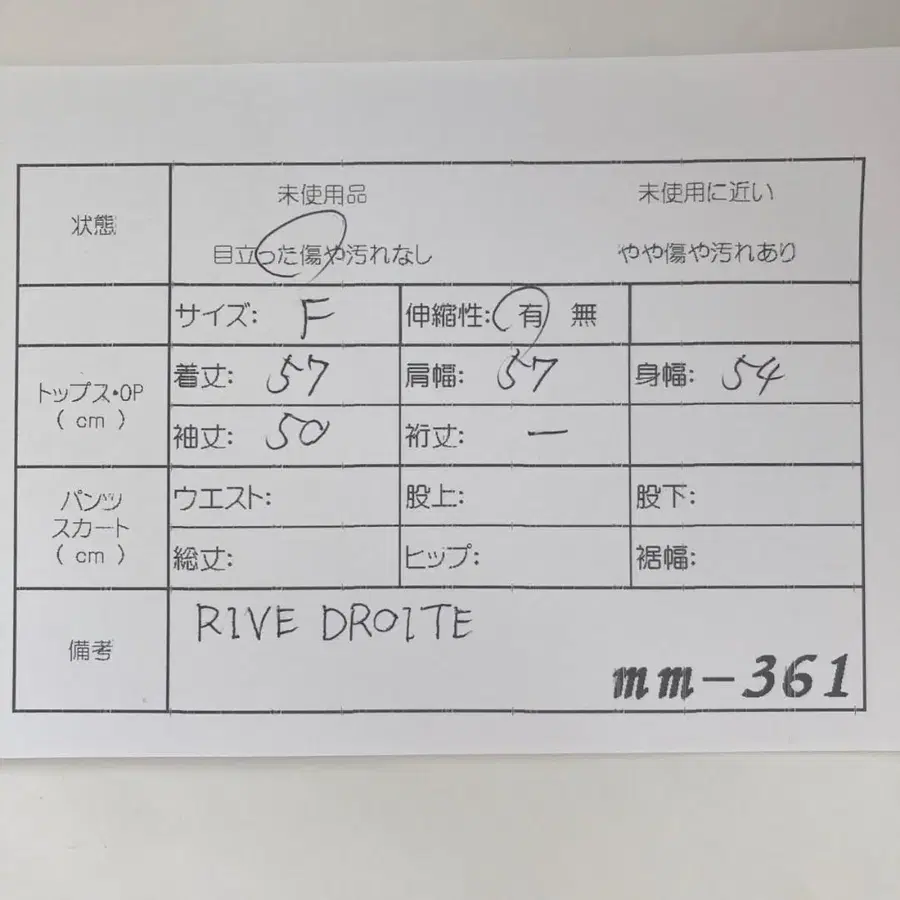 状態
未使用品 未使用に近い
目立った傷や汚れなし やや傷や汚れあり
サイズ: F 伸縮性: 有 無
トップス・OP
( cm )
着丈: 57 肩幅: 57 身幅: 54
袖丈: 50 裄丈: ー
パンツ
スカート
( cm )
ウエスト: 股上: 股下:
総丈: ヒップ: 裾幅:
備考
RIVE DROITE
mm-361